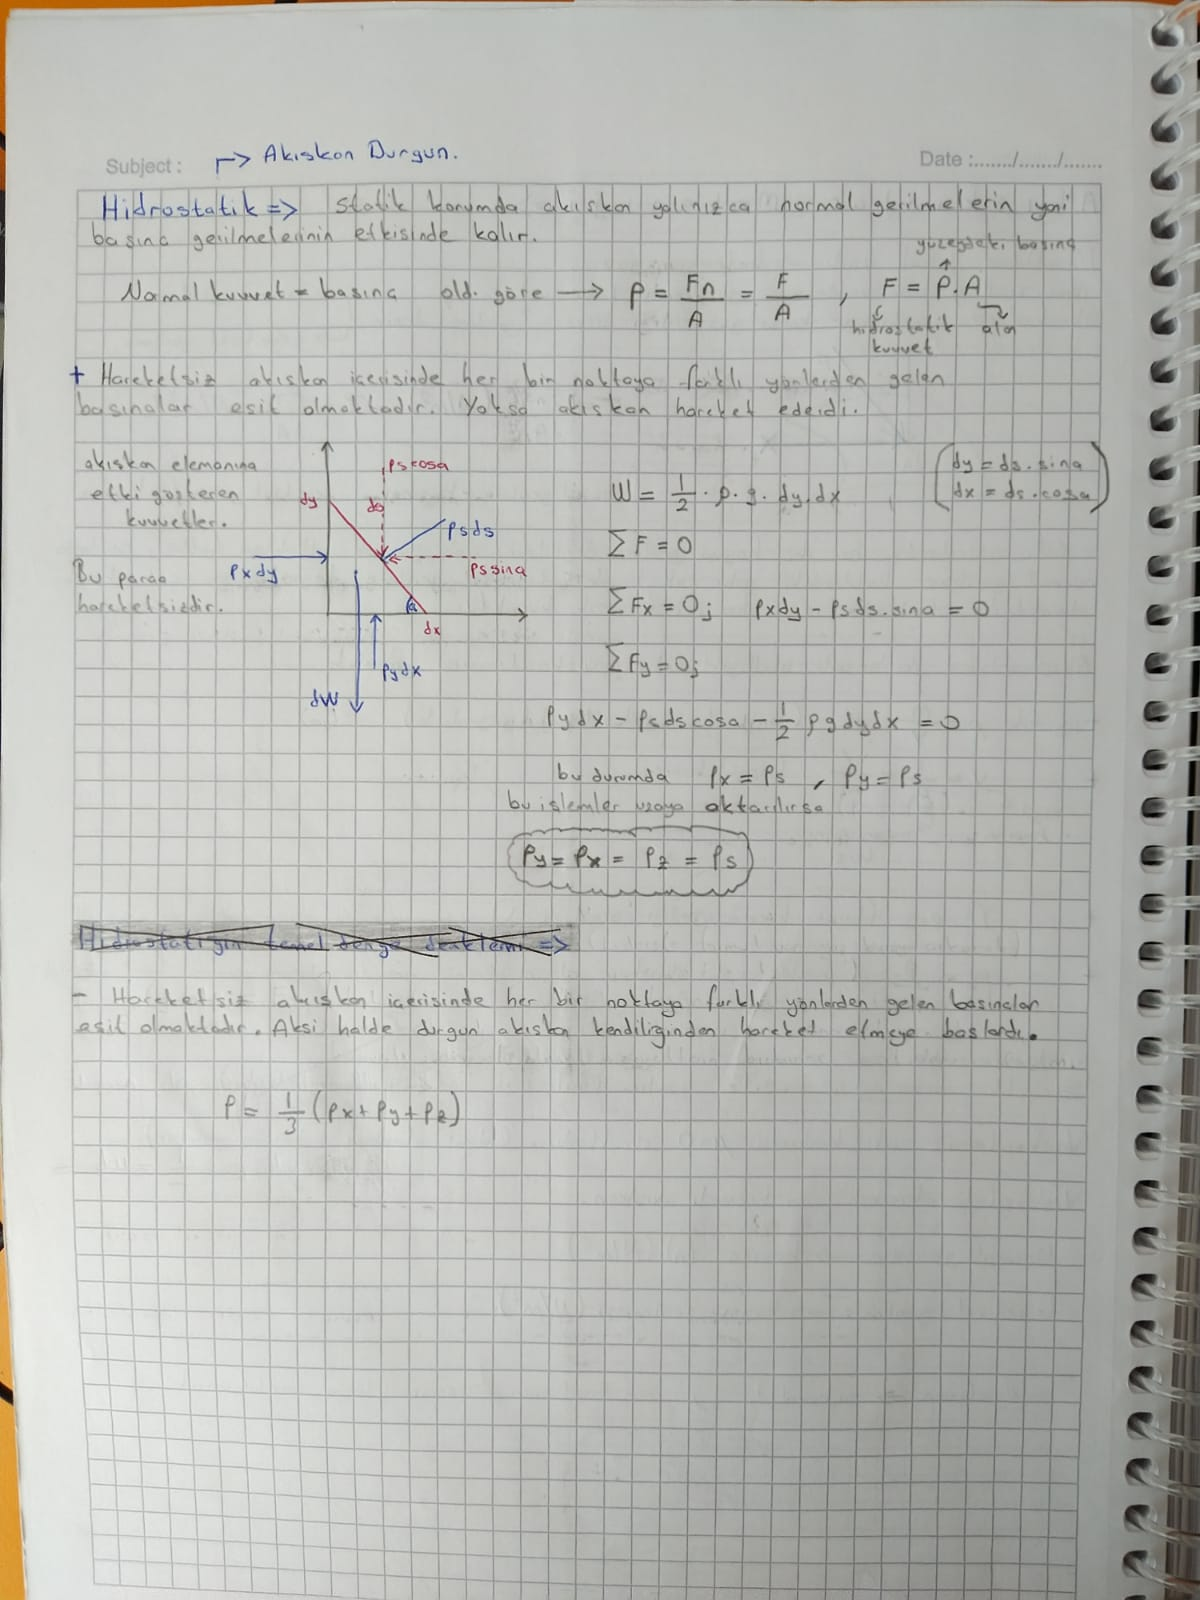 Subject : → Akışkan Durgun.
Date :......./......./.......
Hidrostatik => Statik konumda akışkan yalnızca normal gerilmelerin yani
basınç gerilmelerinin etkisinde kalır.
Normal kuvvet = basınç old. göre → P = Fn/A = F/A , F = P.A
yüzeydeki basınç
hidrostatik kuvvet
alan
+ Hareketsiz akışkan içerisinde her bir noktaya farklı yönlerden gelen
basınçlar eşit olmaktadır. Yoksa akışkan hareket ederdi.
akışkan elemanına
etki gösteren
kuvvetler.
Bu parça
hareketsizdir.
dy
ds
Pscosa
Psds
Pssina
Pxdy
a
dx
Pydx
dW
W = 1/2 . ρ . g . dy.dx
(dy = ds.sina
dx = ds.cosa)
ΣF = 0
ΣFx = 0; Pxdy - Psds.sina = 0
ΣFy = 0;
Pydx - Psdscosa - 1/2 ρgdydx = 0
bu durumda Px = Ps , Py = Ps
bu işlemler uzaya aktarılırsa
Py = Px = Pz = Ps
Hidrostatiğin temel denge denklemi =>
- Hareketsiz akışkan içerisinde her bir noktaya farklı yönlerden gelen basınçlar
eşit olmaktadır. Aksi halde durgun akışkan kendiliğinden hareket etmeye başlardı.
P = 1/3 (Px + Py + Pz)